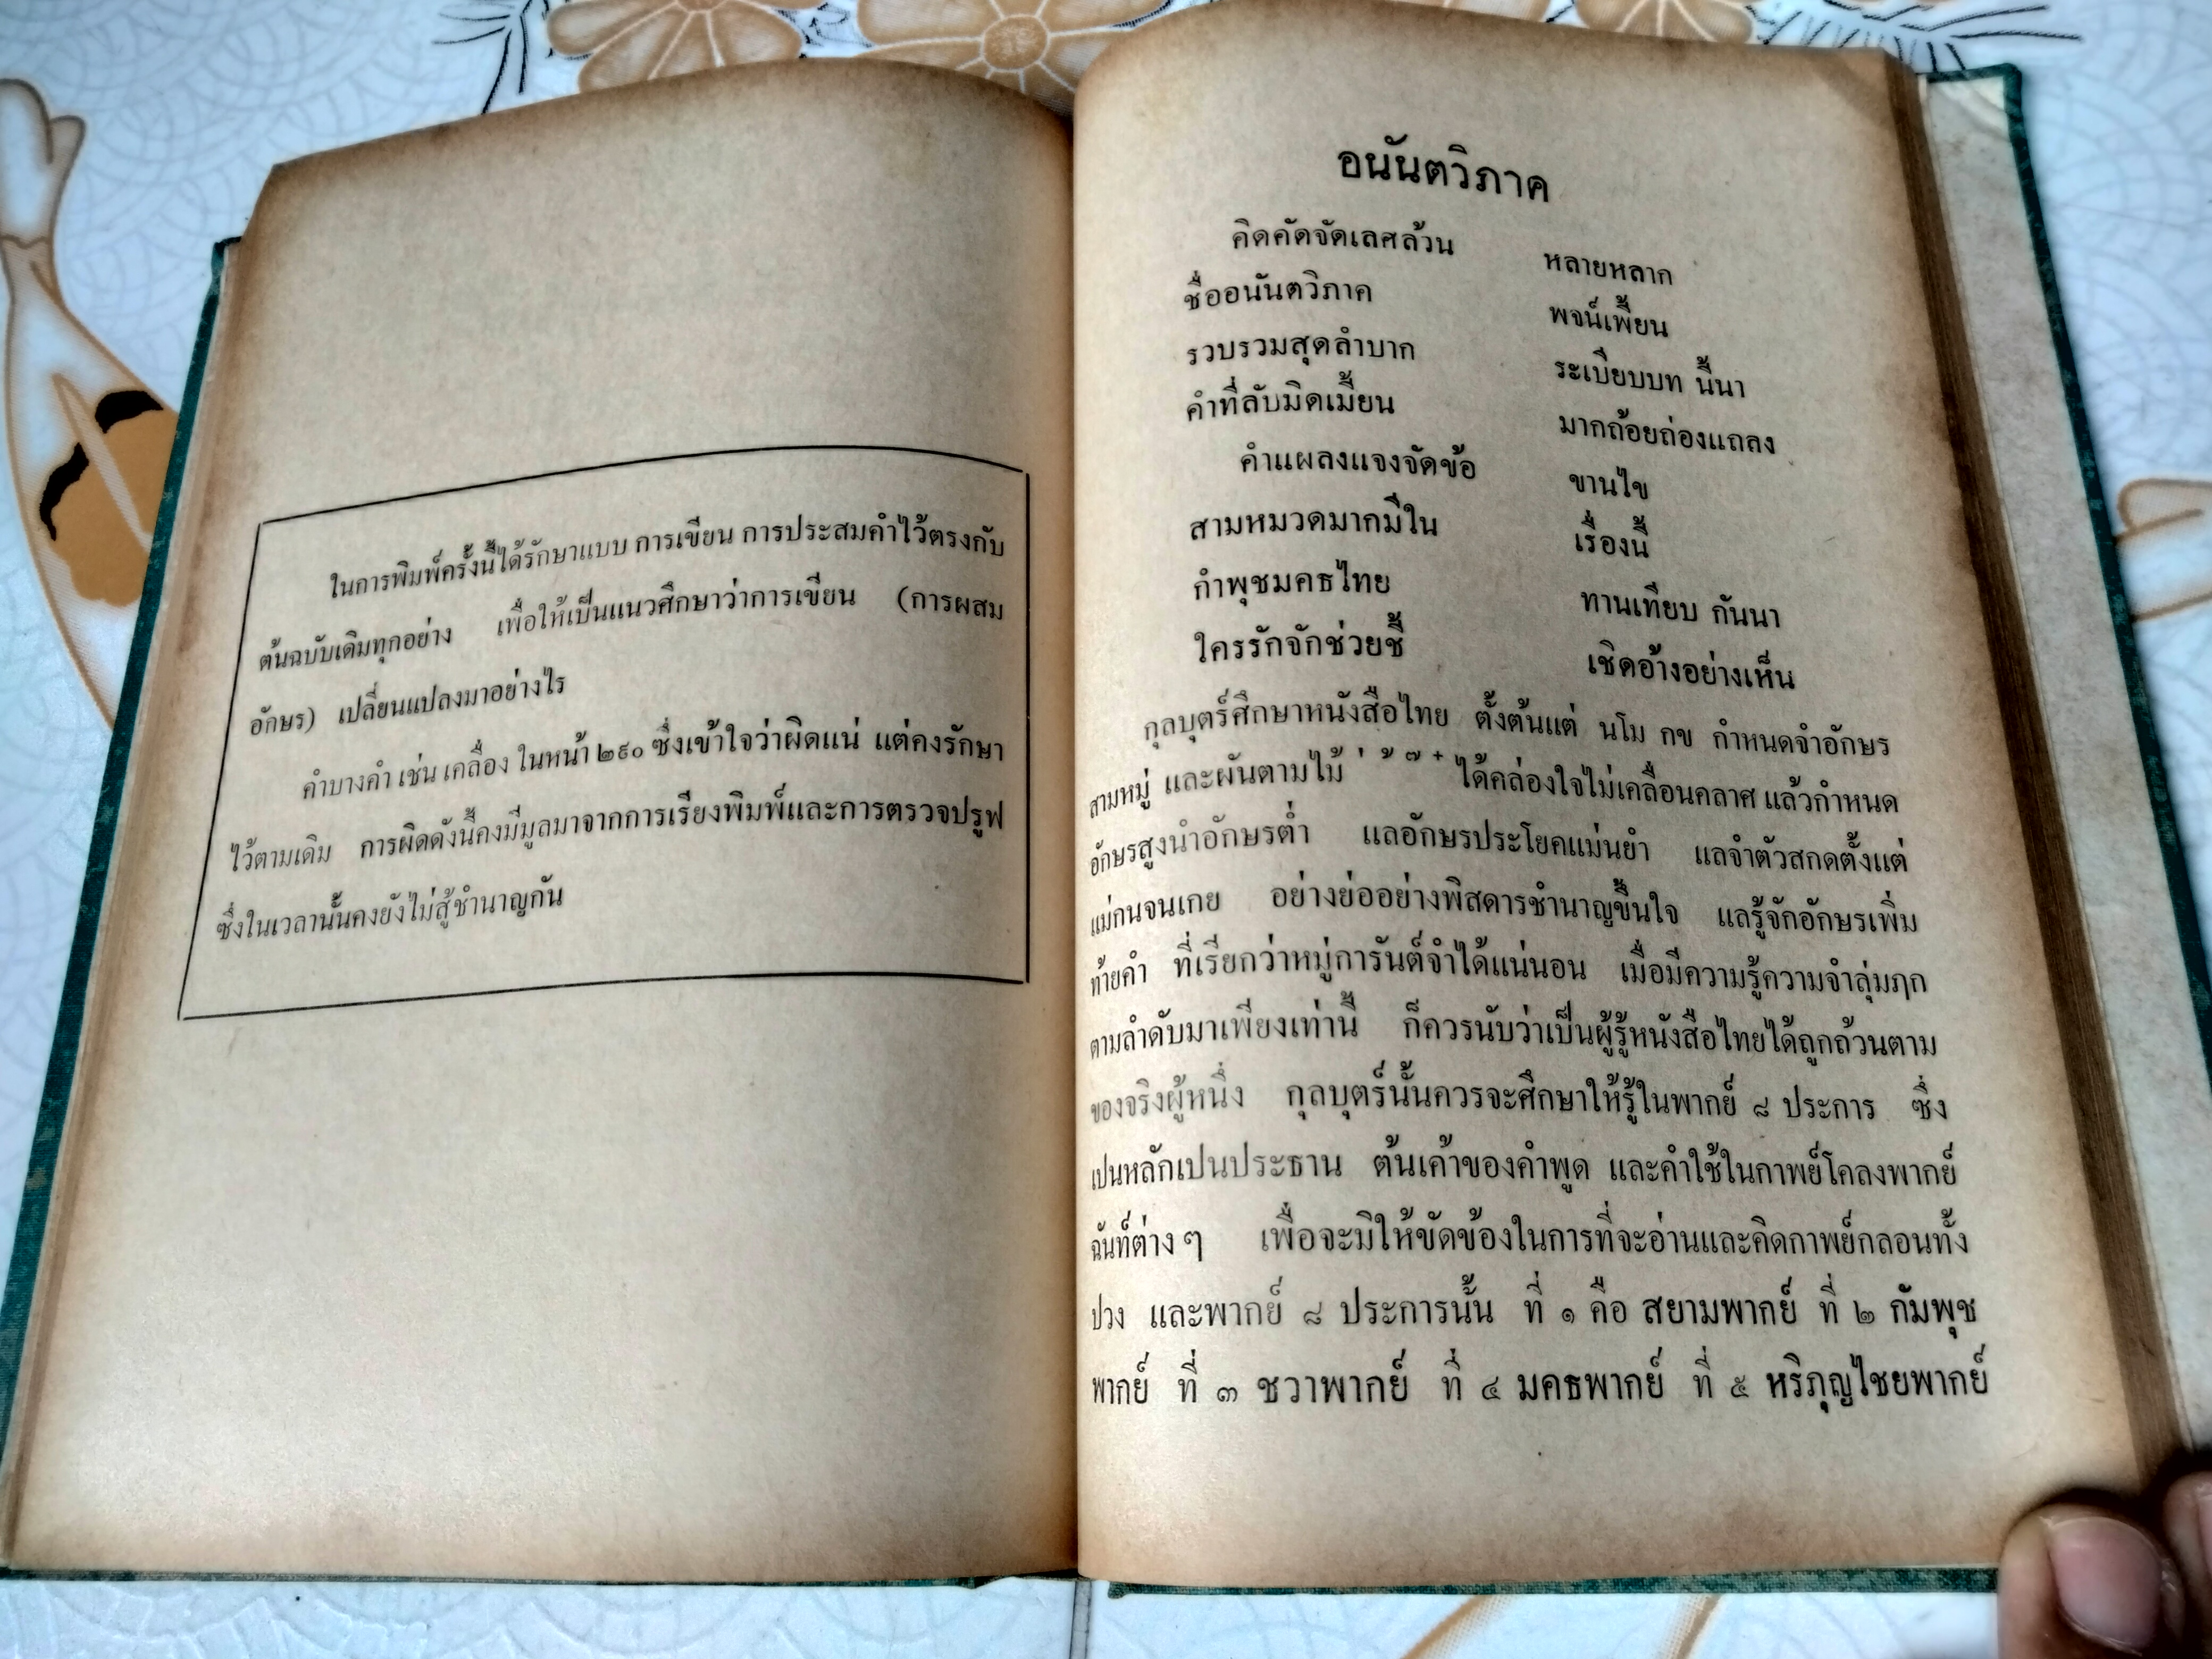 ในการพิมพ์ครั้งนี้ได้รักษาแบบ การเขียน การประสมคำไว้ตรงกับ
ต้นฉบับเดิมทุกอย่าง เพื่อให้เป็นแนวศึกษาว่าการเขียน (การผสม
อักษร) เปลี่ยนแปลงมาอย่างไร
คำบางคำ เช่น เคลื่อง ในหน้า ๒๙๐ ซึ่งเข้าใจว่าผิดแน่ แต่คงรักษา
ไว้ตามเดิม การผิดดังนี้คงมีมูลมาจากการเรียงพิมพ์และการตรวจปรูฟ
ซึ่งในเวลานั้นคงยังไม่สู้ชำนาญกัน
อนันตวิภาค
คิดคัดจัดเลศล้วน หลายหลาก
ชื่ออนันตวิภาค พจน์เพี้ยน
รวบรวมสุดลำบาก ระเบียบบท นี้นา
คำที่ลับมิดเมี้ยน มากถ้อยถ่องแถลง
คำแผลงแจงจัดข้อ ขานไข
สามหมวดมากมีใน เรื่องนี้
กำพุชมคธไทย ทานเทียบ กันนา
ใครรักจักช่วยชี้ เชิดอ้างอย่างเห็น
กุลบุตร์ศึกษาหนังสือไทย ตั้งต้นแต่ นโม กข กำหนดจำอักษร
สามหมู่ และผันตามไม้ ่ ้ ๊ ๋ ได้คล่องใจไม่เคลื่อนคลาศ แล้วกำหนด
อักษรสูงนำอักษรต่ำ แลอักษรประโยคแม่นยำ แลจำตัวสกดตั้งแต่
แม่กนจนเกย อย่างย่ออย่างพิสดารชำนาญขึ้นใจ แลรู้จักอักษรเพิ่ม
ท้ายคำ ที่เรียกว่าหมู่การันต์จำได้แน่นอน เมื่อมีความรู้ความจำลุ่มฦก
ตามลำดับมาเพียงเท่านี้ ก็ควรนับว่าเป็นผู้รู้หนังสือไทยได้ถูกถ้วนตาม
ของจริงผู้หนึ่ง กุลบุตร์นั้นควรจะศึกษาให้รู้ในพากย์ ๘ ประการ ซึ่ง
เปนหลักเปนประธาน ต้นเค้าของคำพูด และคำใช้ในกาพย์โคลงพากย์
ฉันท์ต่าง ๆ เพื่อจะมิให้ขัดข้องในการที่จะอ่านและคิดกาพย์กลอนทั้ง
ปวง และพากย์ ๘ ประการนั้น ที่ ๑ คือ สยามพากย์ ที่ ๒ กัมพุช
พากย์ ที่ ๓ ชวาพากย์ ที่ ๔ มคธพากย์ ที่ ๕ หริภุญไชยพากย์